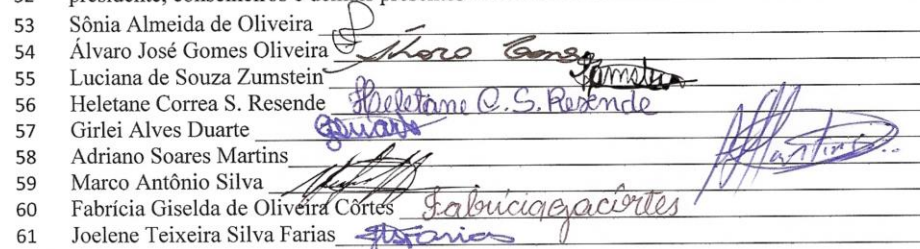 53 Sônia Almeida de Oliveira
54 Álvaro José Gomes Oliveira Álvaro Gomes
55 Luciana de Souza Zumstein Zumstein
56 Heletane Correa S. Resende Heletane C.S. Resende
57 Girlei Alves Duarte GDuarte
58 Adriano Soares Martins AMartins
59 Marco Antônio Silva
60 Fabrícia Giselda de Oliveira Côrtes Fabríciagocôrtes
61 Joelene Teixeira Silva Farias